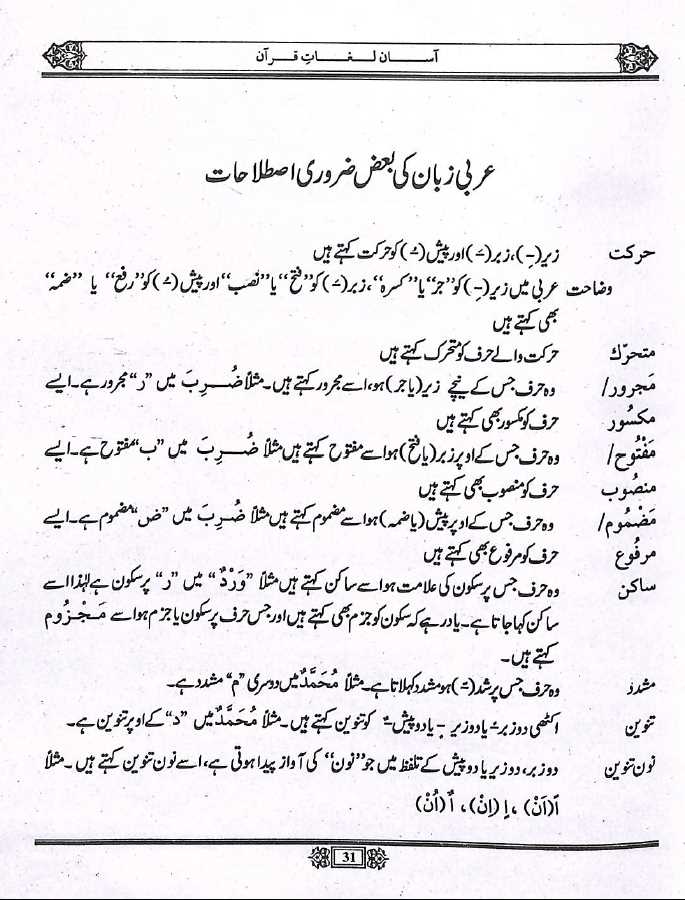 آسان لغاتِ قرآن
عربی زبان کی بعض ضروری اصطلاحات
حرکت زیر (ـِ)، زبر (ـَ) اور پیش (ـُ) کو حرکت کہتے ہیں
وضاحت عربی میں زیر (ـِ) کو ”جر“ یا ”کسرہ“، زبر (ـَ) کو ”فتح“ یا ”نصب“ اور پیش (ـُ) کو ”رفع“ یا ”ضمہ“
بھی کہتے ہیں
متحرّک حرکت والے حرف کو متحرک کہتے ہیں
مَجرور/ وہ حرف جس کے نیچے زیر (یا جر) ہو، اسے مجرور کہتے ہیں۔ مثلاً ضُرِبَ میں ”ر“ مجرور ہے۔ ایسے
مکسُور حرف کو مکسور بھی کہتے ہیں
مَفْتُوح/ وہ حرف جس کے اوپر زبر (یا فتح) ہو اسے مفتوح کہتے ہیں مثلاً ضُرِبَ میں ”ب“ مفتوح ہے۔ ایسے
منصُوب حرف کو منصوب بھی کہتے ہیں
مَضْمُوم/ وہ حرف جس کے اوپر پیش (یا ضمہ) ہو اسے مضموم کہتے ہیں مثلاً ضُرِبَ میں ”ض“ مضموم ہے۔ ایسے
مرفُوع حرف کو مرفوع بھی کہتے ہیں
ساکن وہ حرف جس پر سکون کی علامت ہو اسے ساکن کہتے ہیں مثلاً ”وَرْدٌ“ میں ”ر“ پر سکون ہے لہٰذا اسے
ساکن کہا جاتا ہے۔ یاد رہے کہ سکون کو جزم بھی کہتے ہیں اور جس حرف پر سکون یا جزم ہو اسے مَجْزُوم
کہتے ہیں۔
مشدد وہ حرف جس پر شد (ـّ) ہو مشدد کہلاتا ہے۔ مثلاً مُحَمَّدٌ میں دوسری ”م“ مشدد ہے۔
تنوین اکٹھی دو زبر ـً یا دو زیر ـٍ یا دو پیش ـٌ کو تنوین کہتے ہیں۔ مثلاً مُحَمَّدٌ میں ”د“ کے اوپر تنوین ہے۔
نون تنوین دو زبر، دو زیر یا دو پیش کے تلفظ میں جو ”نون“ کی آواز پیدا ہوتی ہے، اسے نون تنوین کہتے ہیں۔ مثلاً
اً (اَنْ)، اٍ (اِنْ)، اٌ (اُنْ)
31